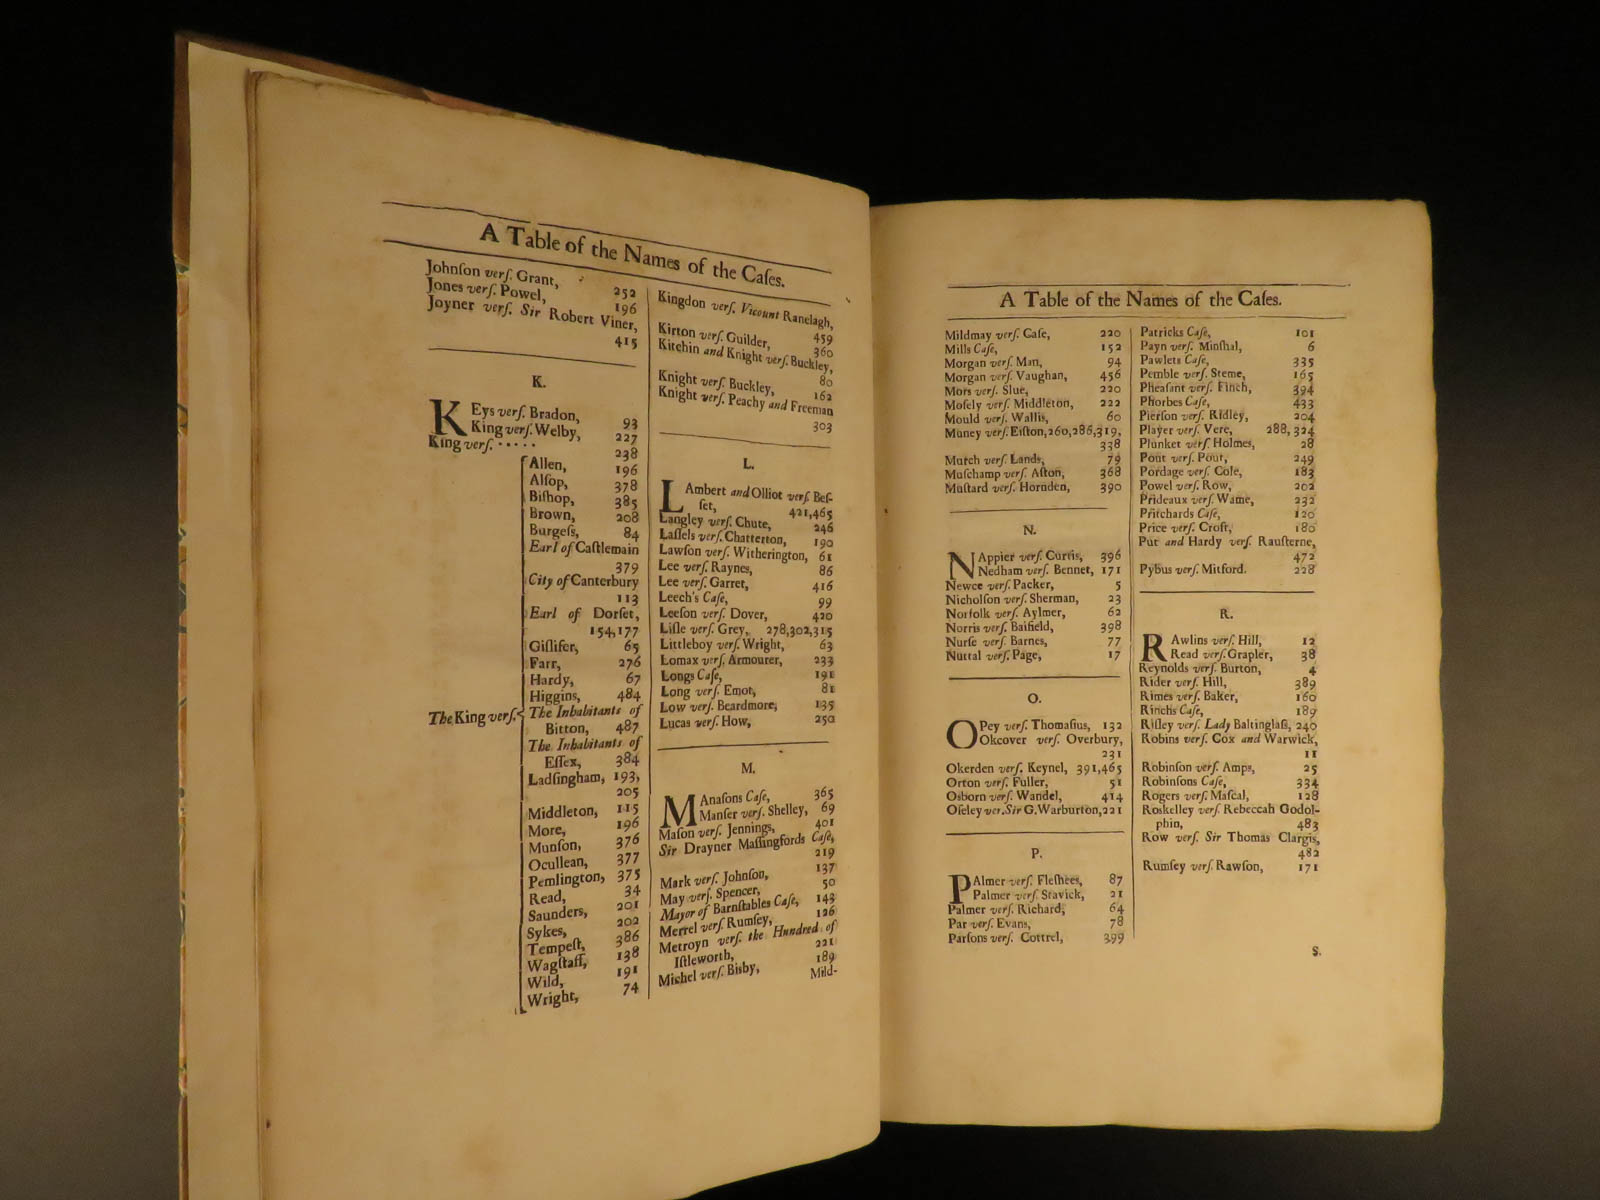 A Table of the Names of the Caſes.
Johnſon verſ. Grant, 252
Jones verſ. Powel, 196
Joyner verſ. Sir Robert Viner,
415
K.
KEys verſ. Bradon, 93
King verſ. Welby, 227
King verſ. ·····
238
The King verſ.
Allen, 196
Alſop, 378
Biſhop, 385
Brown, 208
Burgeſs, 84
Earl of Caſtlemain
379
City of Canterbury
113
Earl of Dorſet,
154,177
Giſlifer, 65
Farr, 276
Hardy, 67
Higgins, 484
The Inhabitants of
Bitton, 487
The Inhabitants of
Eſſex, 384
Ladſingham, 193,
205
Middleton, 115
More, 196
Munſon, 376
Ocullean, 377
Pemlington, 375
Read, 34
Saunders, 201
Sykes, 202
Tempeſt, 386
Wagſtaff, 138
Wild, 191
Wright, 74
Kingdon verſ. Vicount Ranelagh,
459
Kirton verſ. Guilder, 360
Kitchin and Knight verſ. Buckley,
80
Knight verſ. Buckley, 162
Knight verſ. Peachy and Freeman
303
L.
LAmbert and Olliot verſ. Beſ-
ſet, 421,465
Langley verſ. Chute, 246
Laſſels verſ. Chatterton, 190
Lawſon verſ. Witherington, 61
Lee verſ. Raynes, 86
Lee verſ. Garret, 416
Leech's Caſe, 99
Leeſon verſ. Dover, 420
Liſle verſ. Grey, 278,302,315
Littleboy verſ. Wright, 63
Lomax verſ. Armourer, 233
Longs Caſe, 191
Long verſ. Emot, 81
Low verſ. Beardmore, 135
Lucas verſ. How, 250
M.
MAnaſons Caſe, 365
Manſer verſ. Shelley, 69
Maſon verſ. Jennings, 401
Sir Drayner Maſſingfords Caſe,
219
Mark verſ. Johnſon, 137
May verſ. Spencer, 50
Mayor of Barnſtables Caſe, 143
Merrel verſ. Rumſey, 126
Metroyn verſ. the Hundred of
Iſtleworth, 221
Michel verſ. Bisby, 189
Mild-
A Table of the Names of the Caſes.
Mildmay verſ. Caſe, 220
Mills Caſe, 152
Morgan verſ. Man, 94
Morgan verſ. Vaughan, 456
Mors verſ. Slue, 220
Moſely verſ. Middleton, 222
Mould verſ. Wallis, 60
Muney verſ. Eiſton, 260,286,319,
338
Mutch verſ. Lands, 79
Muſchamp verſ. Aſton, 368
Muſtard verſ. Hornden, 390
N.
NAppier verſ. Curtis, 396
Nedham verſ. Bennet, 171
Newce verſ. Packer, 5
Nicholſon verſ. Sherman, 23
Norfolk verſ. Aylmer, 62
Norris verſ. Baifield, 398
Nurſe verſ. Barnes, 77
Nuttal verſ. Page, 17
O.
OPey verſ. Thomaſius, 132
Okcover verſ. Overbury,
231
Okerden verſ. Keynel, 391,465
Orton verſ. Fuller, 51
Osborn verſ. Wandel, 414
Oſeley ver. Sir G. Warburton, 221
P.
PAlmer verſ. Fleſhees, 87
Palmer verſ. Stavick, 21
Palmer verſ. Richard, 64
Par verſ. Evans, 78
Parſons verſ. Cottrel, 399
Patricks Caſe, 101
Payn verſ. Minſhal, 6
Pawlets Caſe, 335
Pemble verſ. Steme, 165
Pheaſant verſ. Finch, 394
Phorbes Caſe, 433
Pierſon verſ. Ridley, 204
Player verſ. Vere, 288, 324
Plunket verſ Holmes, 28
Pont verſ. Pont, 249
Pordage verſ. Cole, 183
Powel verſ. Row, 202
Prideaux verſ. Wame, 232
Pritchards Caſe, 120
Price verſ. Croft, 180
Put and Hardy verſ. Rauſterne,
472
Pybus verſ. Mitford. 228
R.
RAwlins verſ. Hill, 12
Read verſ. Grapler, 38
Reynolds verſ. Burton, 4
Rider verſ. Hill, 389
Rimes verſ. Baker, 160
Rinchs Caſe, 189
Riſley verſ. Lady Baltinglaſs, 240
Robins verſ. Cox and Warwick,
11
Robinſon verſ. Amps, 25
Robinſons Caſe, 334
Rogers verſ. Maſcal, 128
Roskelley verſ. Rebeccah Godol-
phin, 483
Row verſ. Sir Thomas Clargis,
482
Rumſey verſ. Rawſon, 171
S.